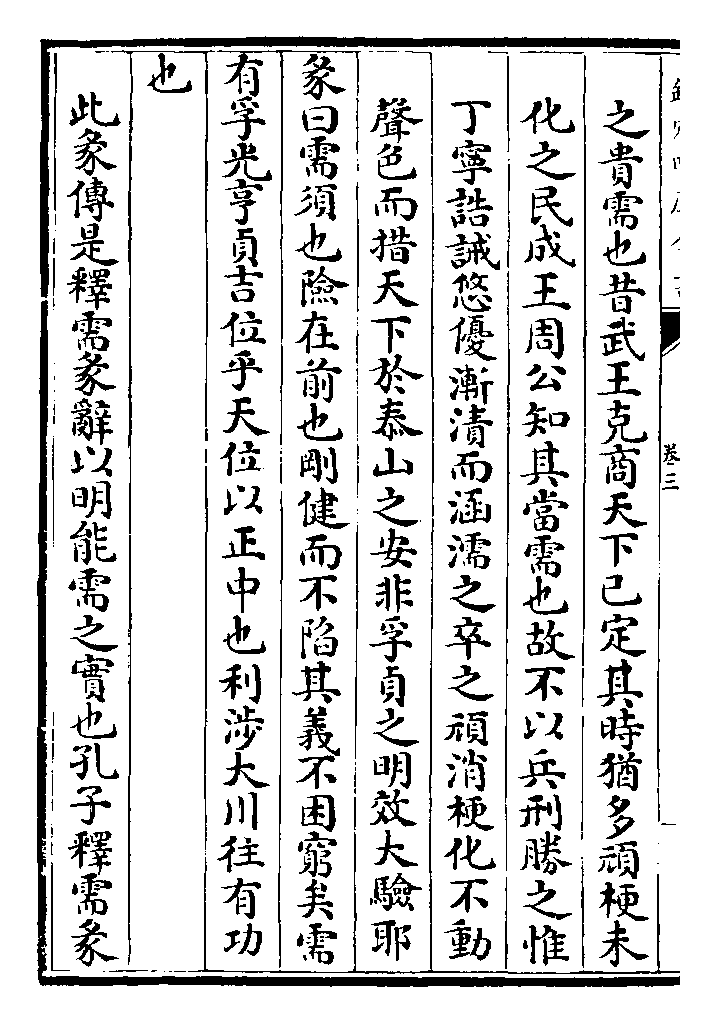 卷三
之貴需也昔武王克商天下已定其時猶多頑梗未
化之民成王周公知其當需也故不以兵刑勝之惟
丁寧誥誡悠優漸漬而涵濡之卒之頑消梗化不動
聲色而措天下於泰山之安非孚貞之明效大驗耶
彖曰需須也險在前也剛健而不陷其義不困窮矣需
有孚光亨貞吉位乎天位以正中也利涉大川往有功
也
此彖傳是釋需彖辭以明能需之實也孔子釋需彖